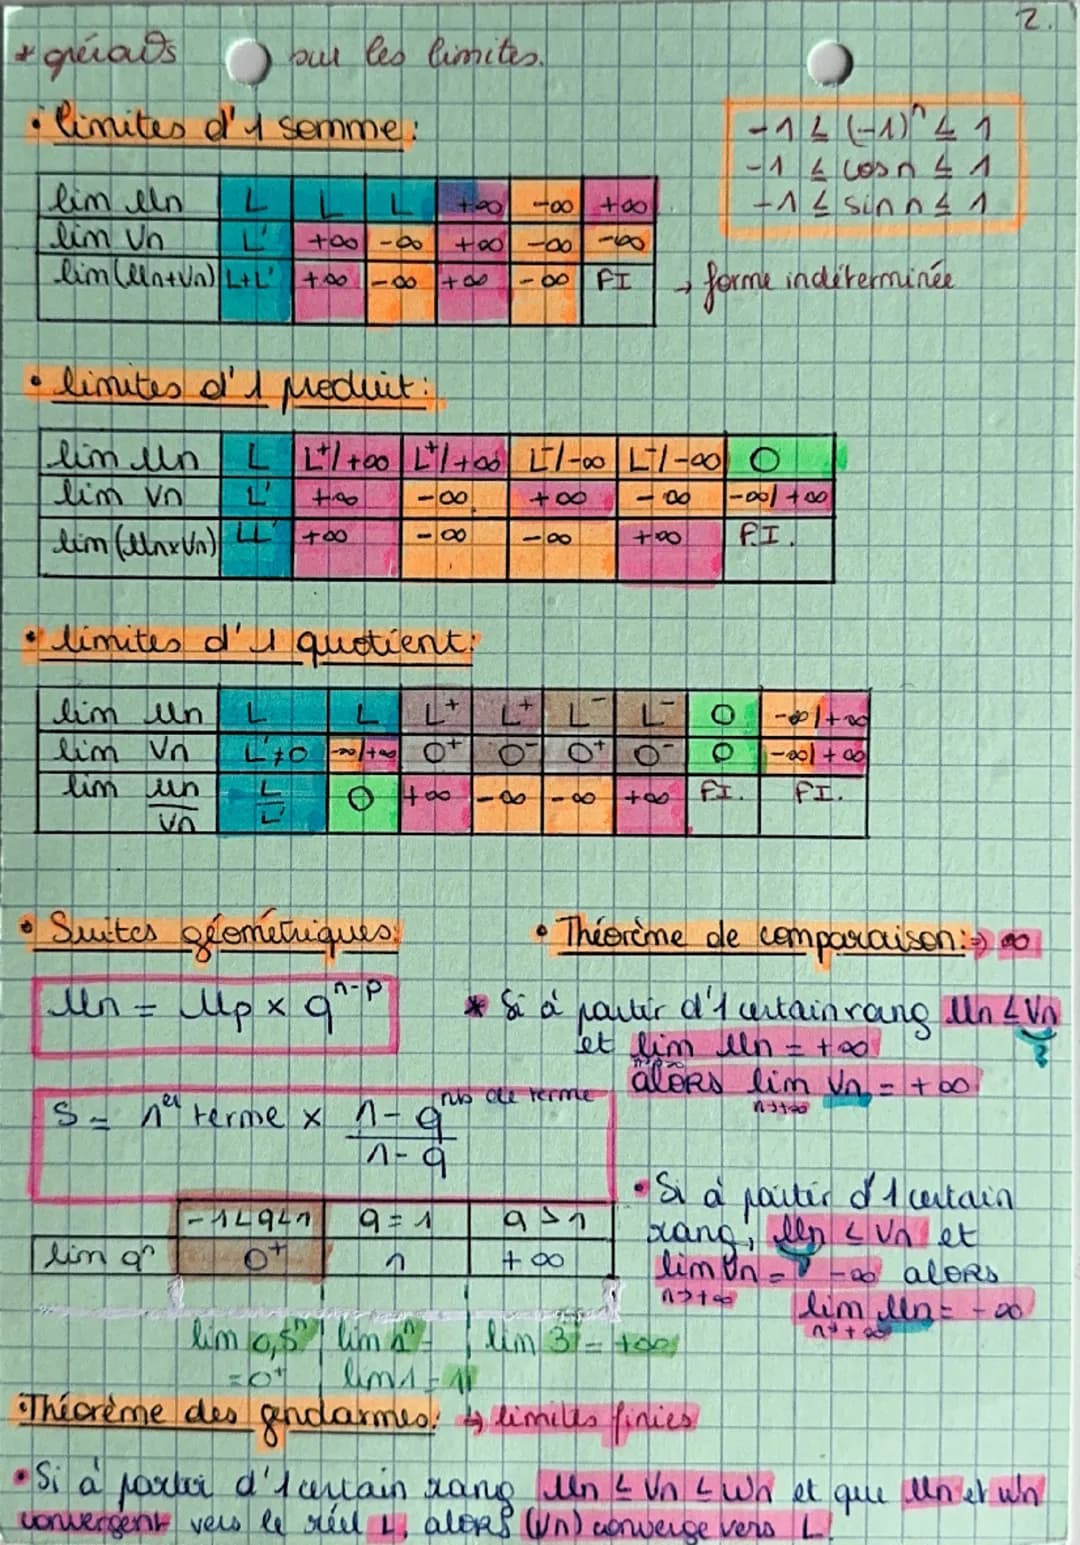 2.
* précaus sur les limites.
• limites d'1 somme:
-1 ≤ (-1)ⁿ ≤ 1
-1 ≤ cos n ≤ 1
-1 ≤ sin n ≤ 1
lim Un | L | L | L | +∞ | -∞ | +∞
lim Vn | L' | +∞ | -∞ | +∞ | -∞ | -∞
lim(Un+Vn) | L+L' | +∞ | -∞ | +∞ | -∞ | FI → forme indéterminée
• limites d'1 produit:
lim Un | L | L⁺/+∞ | L⁺/+∞ | L⁻/-∞ | L⁻/-∞ | 0
lim Vn | L' | +∞ | -∞ | +∞ | -∞ | -∞/+∞
lim(Un×Vn) | LL' | +∞ | -∞ | -∞ | +∞ | F.I.
• limites d'1 quotient:
lim Un | L | L | L⁺ | L⁺ | L⁻ | L⁻ | 0 | -∞/+∞
lim Vn | L'≠0 | -∞/+∞ | 0⁺ | 0⁻ | 0⁺ | 0⁻ | 0 | -∞/+∞
lim Un/Vn | L/L' | 0 | +∞ | -∞ | -∞ | +∞ | FI. | FI.
• Suites géométriques:
Un = Up × q^(n-p)
S = 1er terme × (1-q^(nb de terme))/(1-q)
-1<q<1 | q=1 | q>1
lim qⁿ | 0⁺ | 1 | +∞
lim 0,5ⁿ | lim 1ⁿ = | lim 3ⁿ = +∞
=0⁺ | lim 1 = 1
• Théorème de comparaison: ⇒ ∞
* Si à partir d'1 certain rang Un ≤ Vn
et lim Un = +∞
n→+∞
alors lim Vn = +∞
n→+∞
• Si à partir d'1 certain
rang, Un ≤ Vn et
lim Vn = -∞ alors
n→+∞
lim Un = -∞
n→+∞
• Théorème des gendarmes: ↳ limites finies
• Si à partir d'1 certain rang Un ≤ Vn ≤ Wn et que Un et Wn
convergent vers le réel L, alors (Vn) converge vers L.